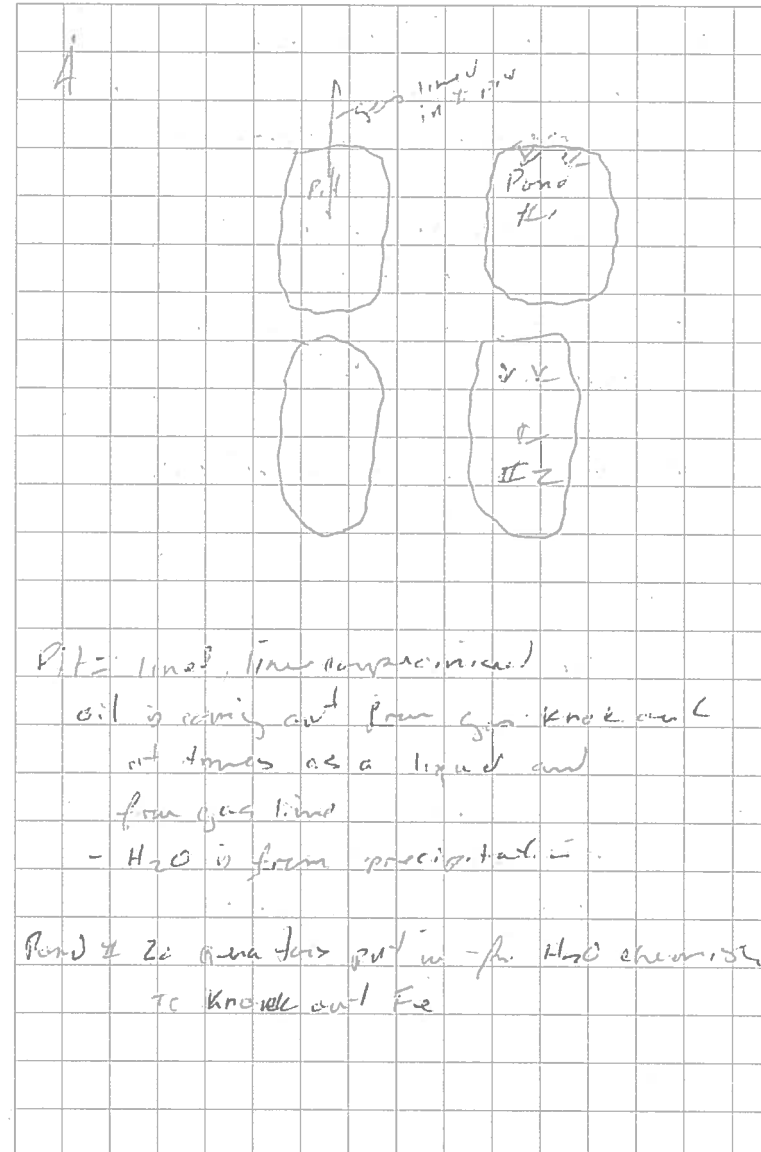 line
in
Pit
Pond
#1
#2
Pit = lined. liner compromised.
oil is coming out from gas knock out
at times as a liquid and
from gas line
- H2O is from precipitation.
Pond # 2: aerators put in for H2O chemistry
to knock out Fe